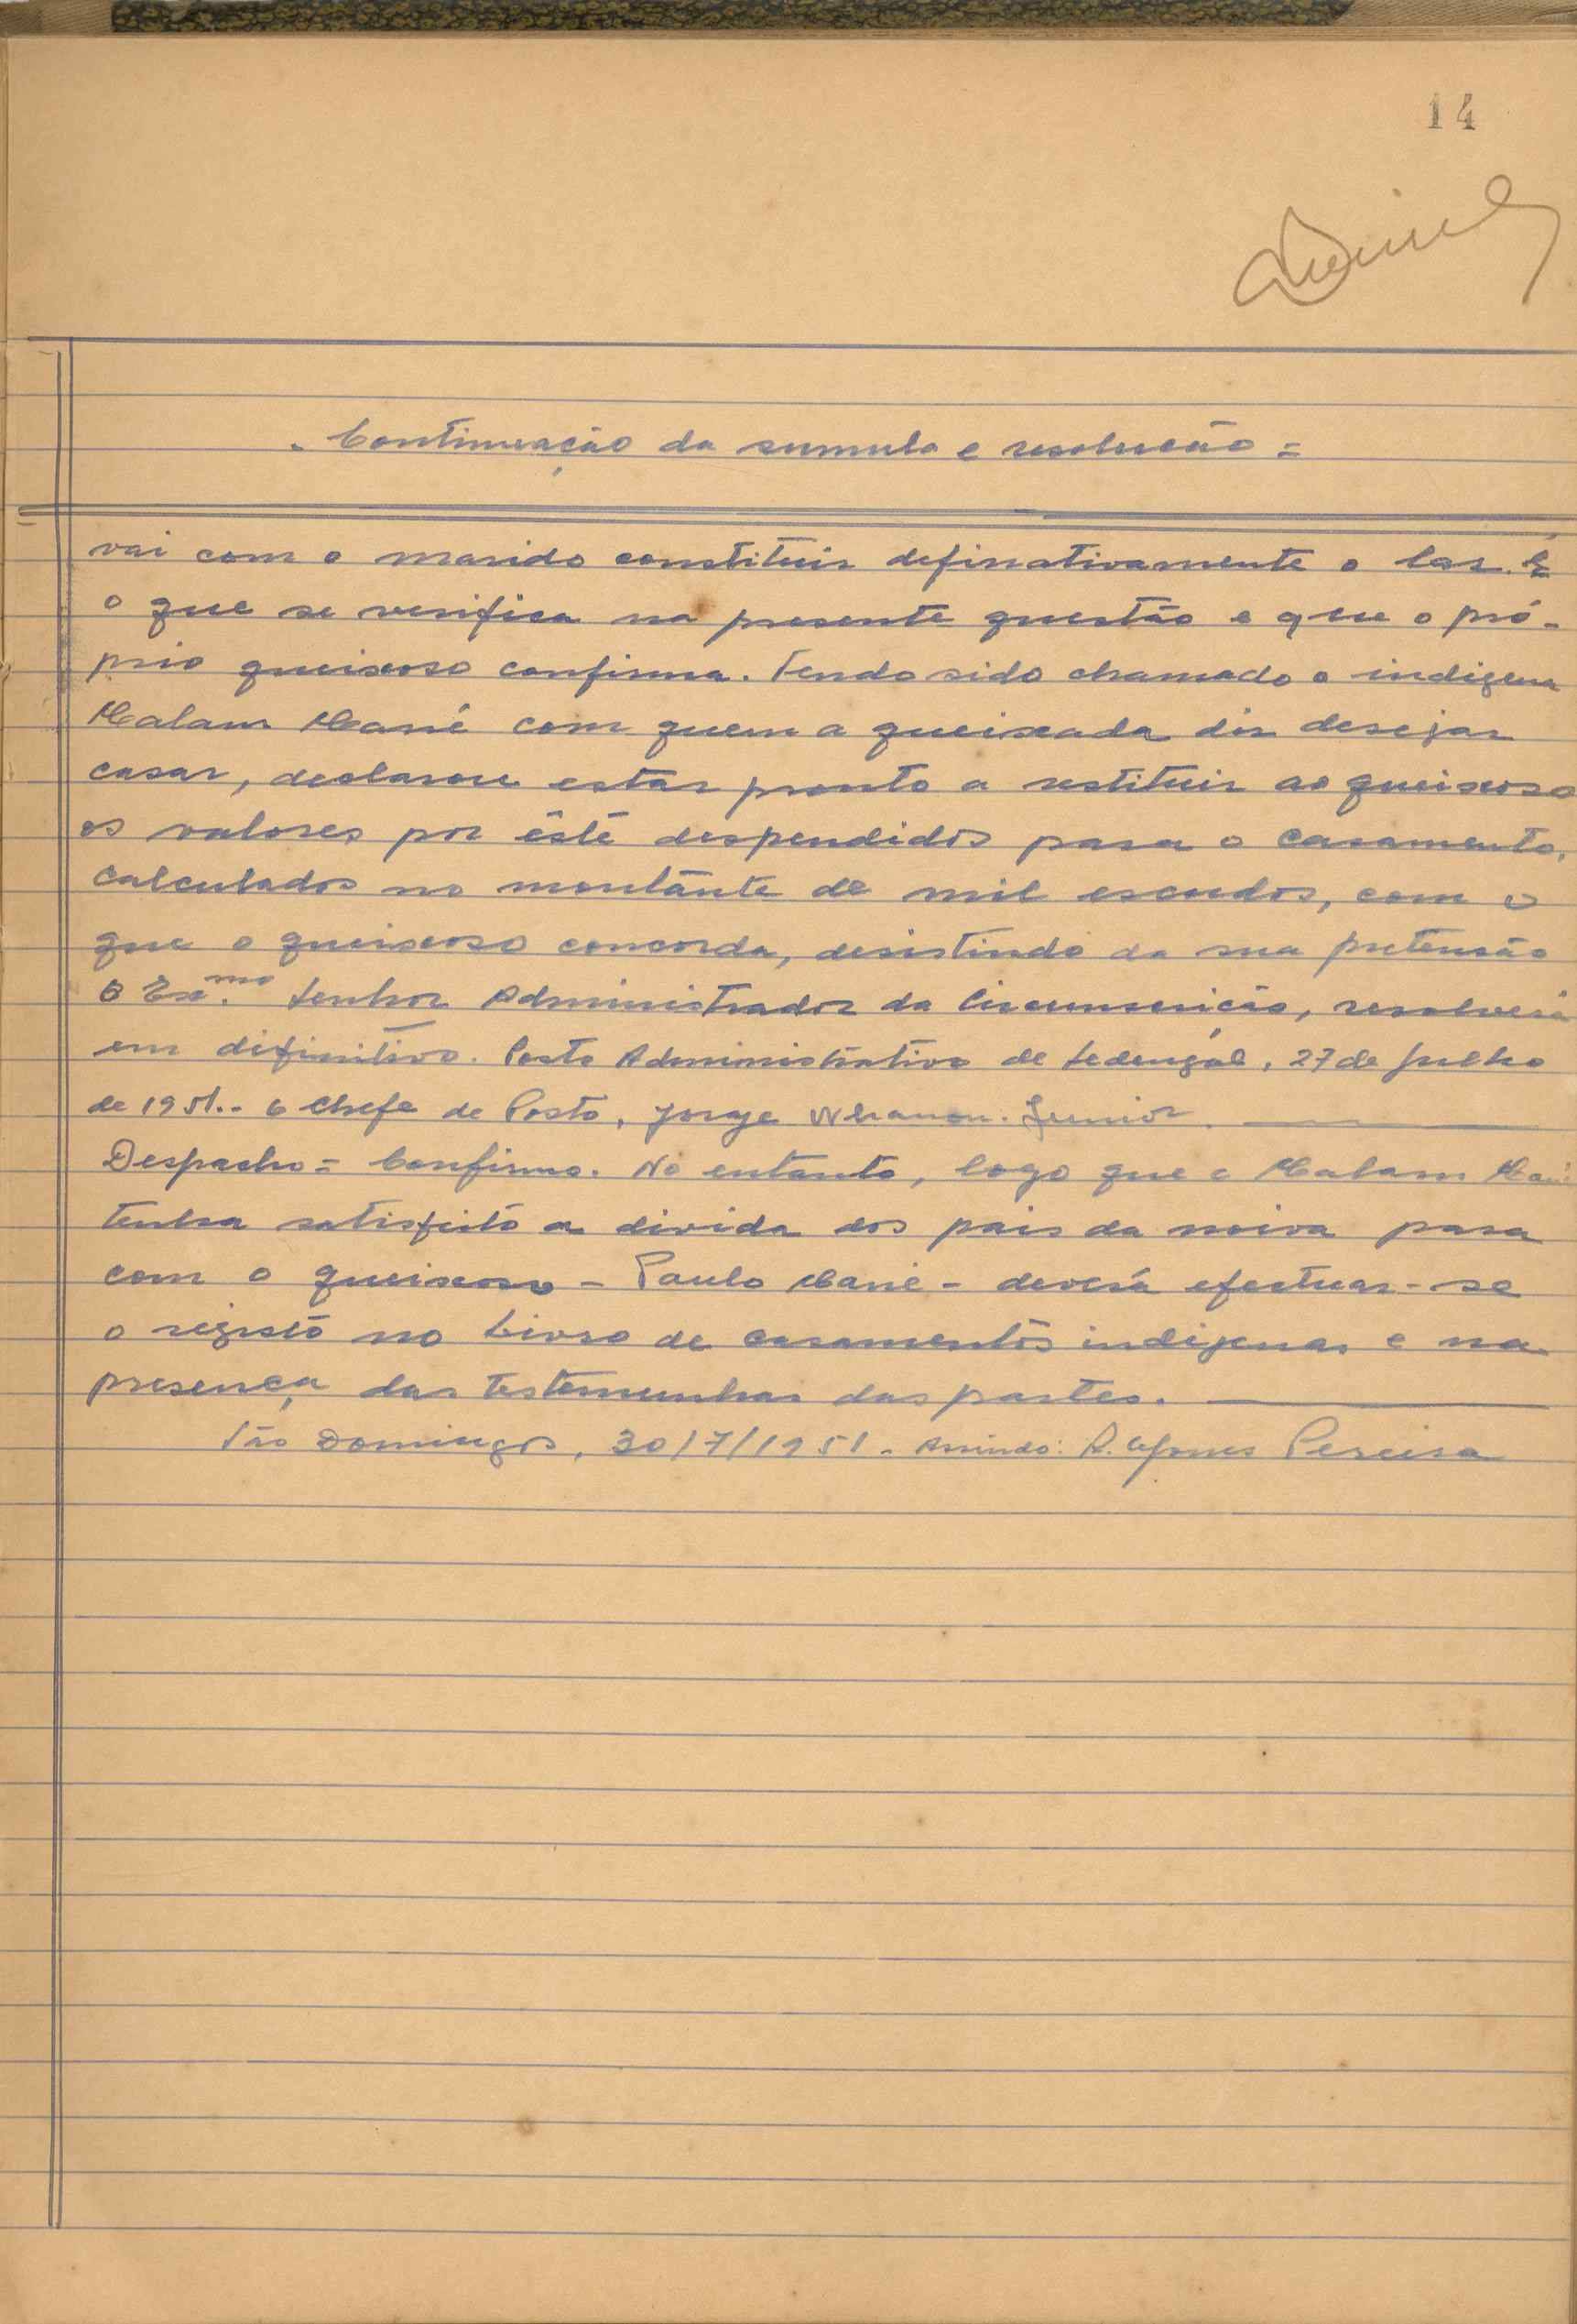 14
= Continuação da sumula e resolução =
vai com o marido constituir definativamente o lar. É
o que se verifica na presente questão e que o pró-
prio queixoso confirma. Tendo sido chamado o indigena
Malam Mané com quem a queixada diz desejar
casar, declarou estar pronto a restituir ao queixoso
os valores por êste despendidos para o casamento,
calculados no montante de mil escudos, com o
que o queixoso concorda, desistindo da sua pretensão
O Exmo. Senhor Administrador da Circunscrição, resolverá
em difinitivo. Posto Administrativo de Sedengál, 27 de Julho
de 1951.. O Chefe de Posto, Jorge Junior.
Despacho = Confirmo. No entanto, logo que o Malam Mané
tenha satisfeito a divida dos pais da noiva para
com o queixoso - Paulo Mané - deverá efectuar-se
o registo no Livro de casamentos indigenas e na
presença das testemunhas das partes.
São Domingos, 30/7/1951. Assinado: A. Gomes Pereira